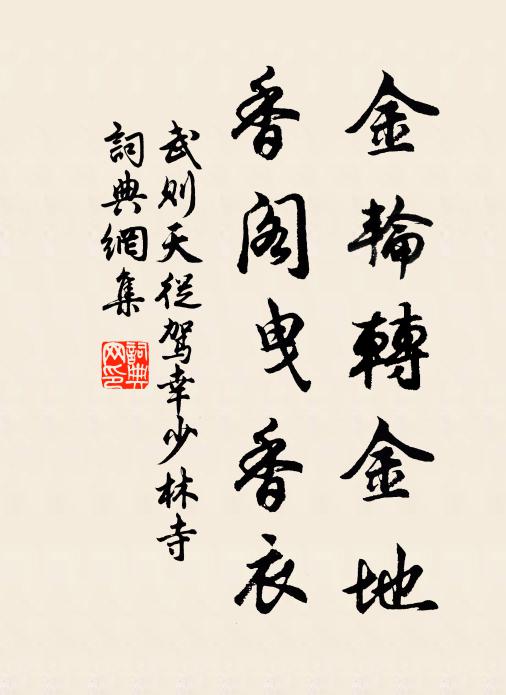 金輪轉金地
香阁曳香衣
武则天從駕幸少林寺
詞典網集
詞典網印